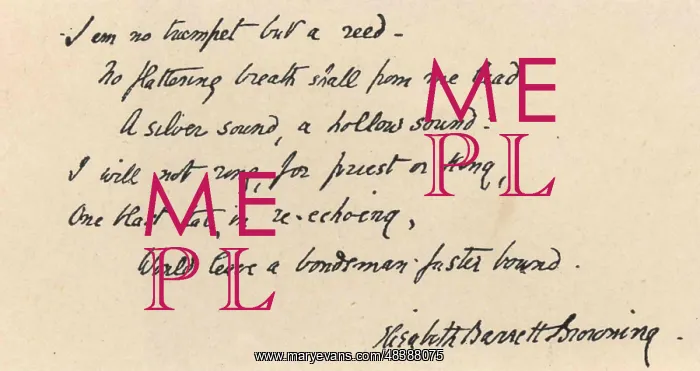 I am no trumpet but a reed -
No flattering breath shall from me lead
A silver sound, a hollow sound -
I will not ring, for priest or king,
One blast that, in re-echoing,
Would leave a bondsman faster bound.
Elizabeth Barrett Browning.
ME
PL
ME
PL
www.maryevans.com/48388075